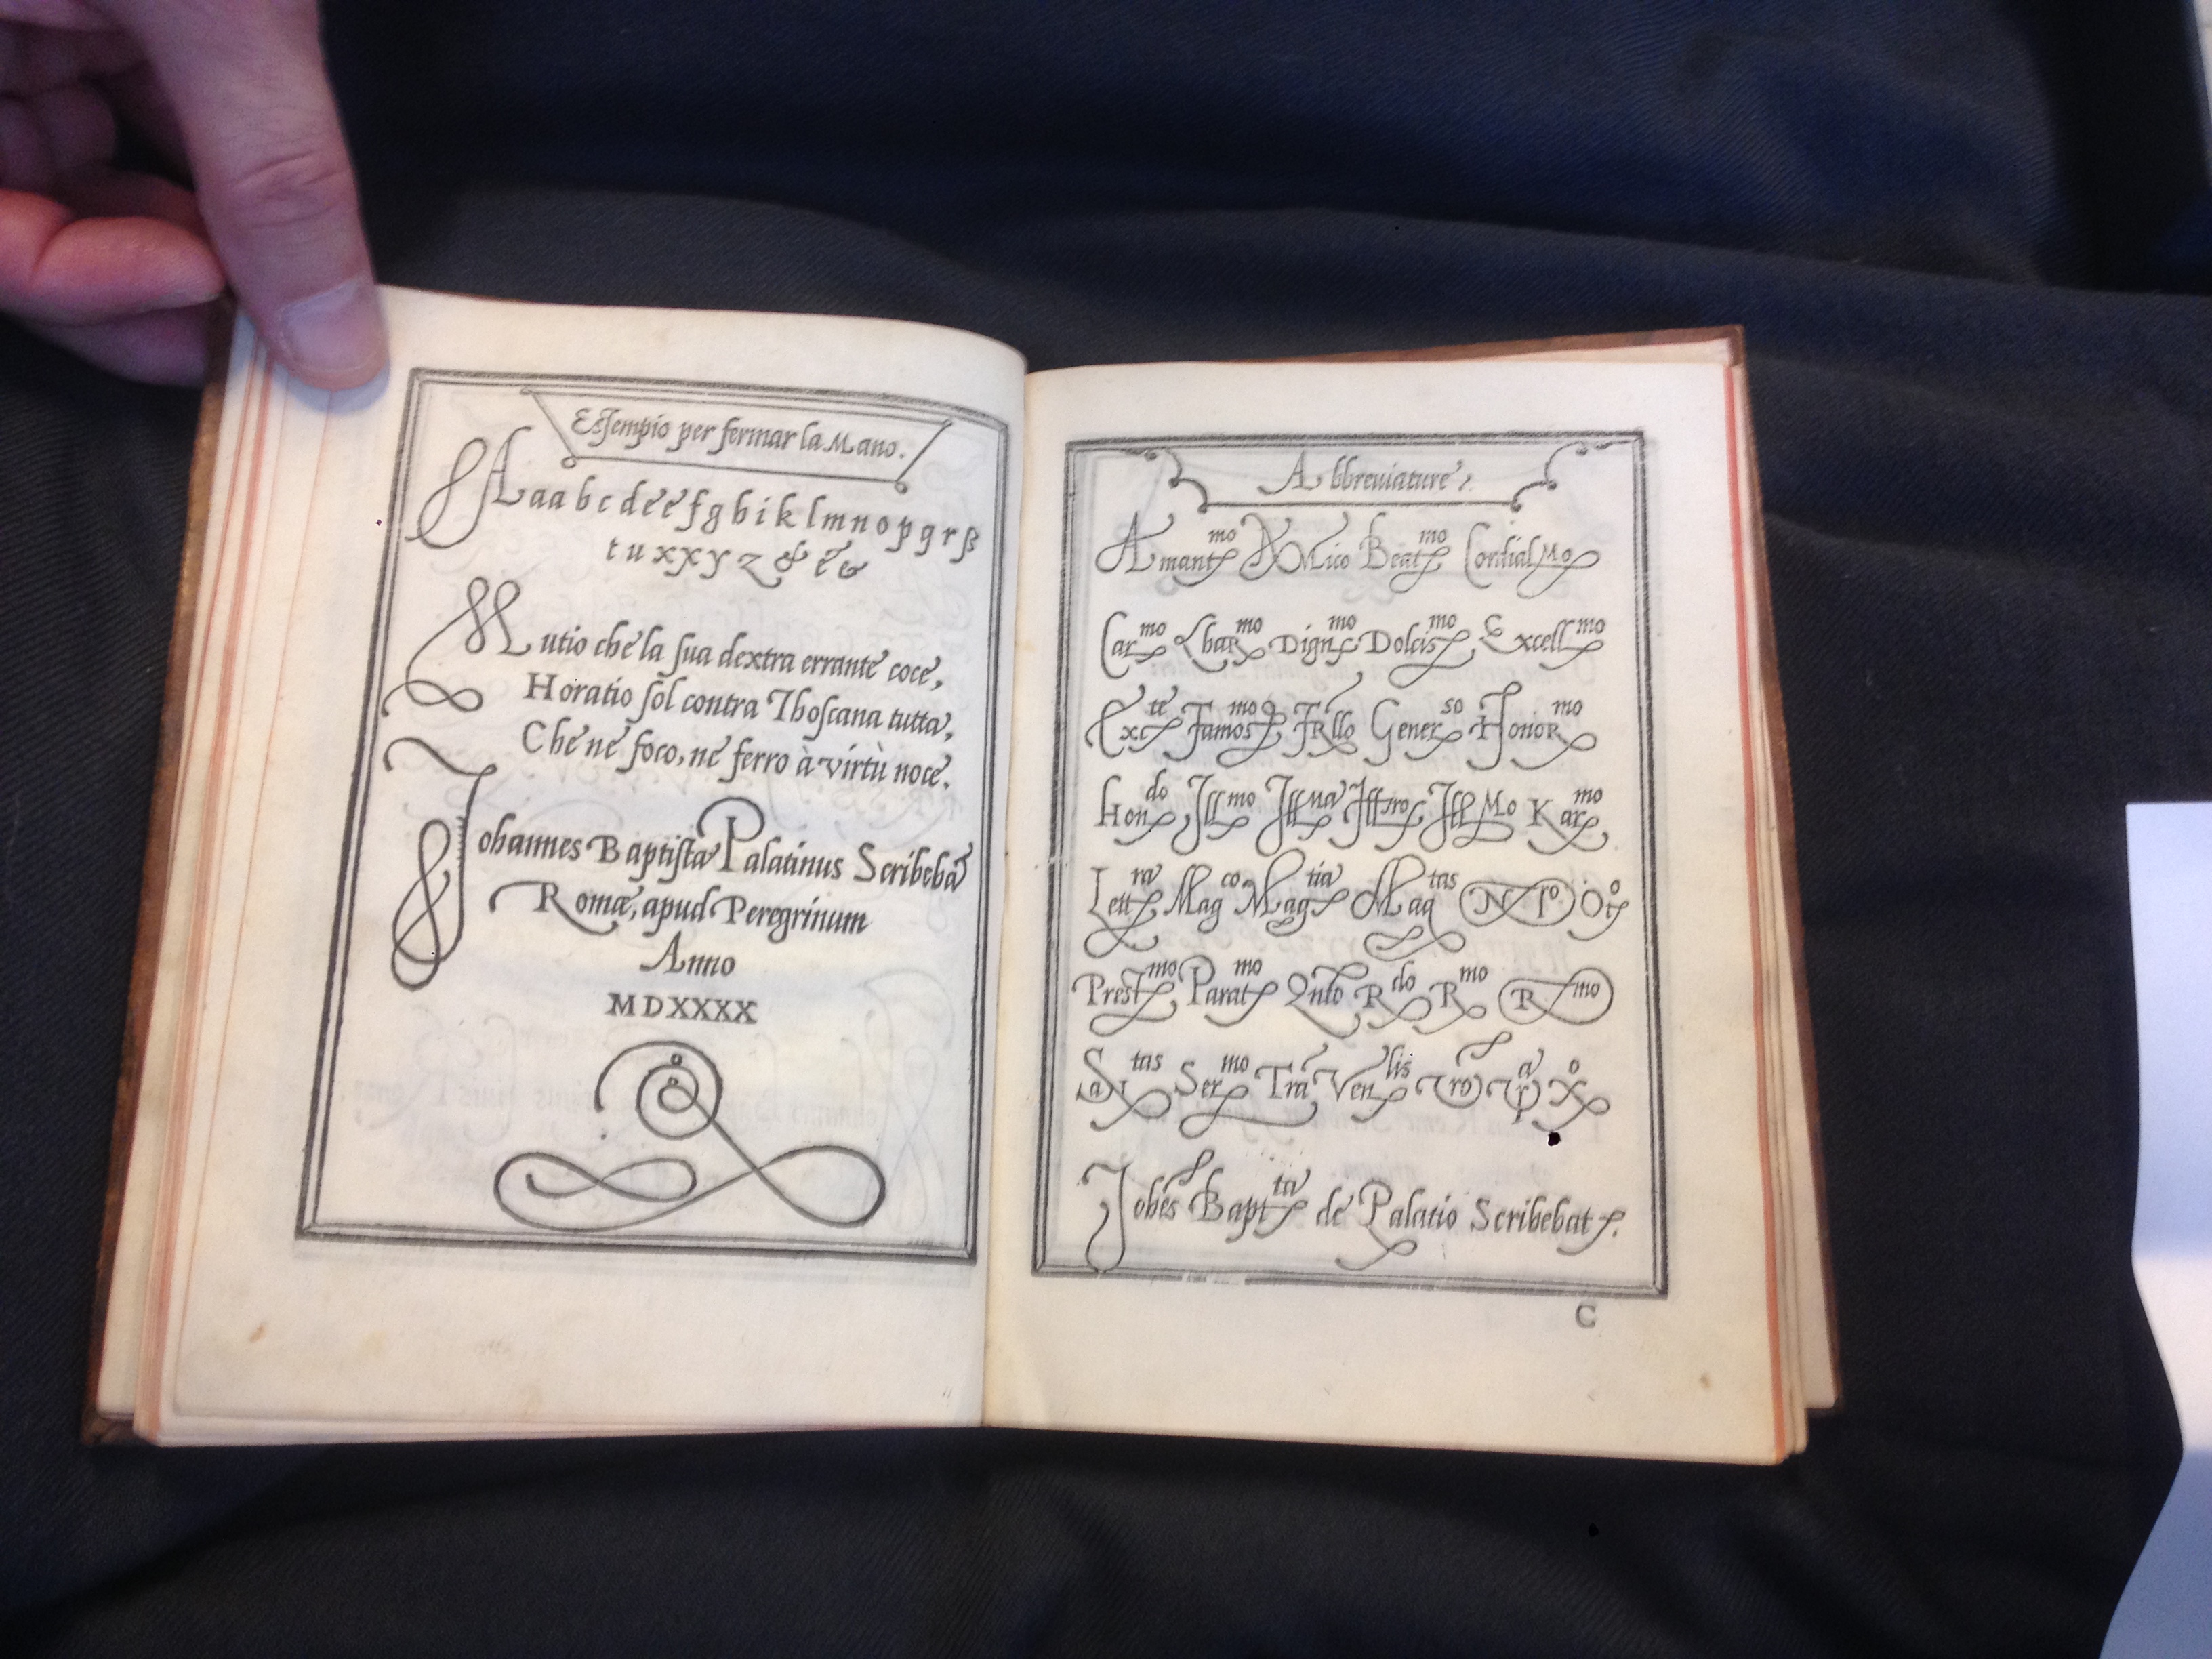 Essempio per fermar la Mano.
A a a b c d e e f g h i k l m n o p q r ſs
t u x x y z & &
Mutio che la sua dextra errante coce,
Horatio sol contra Thoscana tutta,
Che ne foco, ne ferro à virtù noce.
Iohannes Baptista Palatinus Scribeba
Romæ, apud Peregrinum
Anno
MDXXXX
Abbreviature.
Amant mo Amico Beat mo Cordial Mo
Car mo Char mo Dign mo Dolcis mo Excell mo
Exc te Famos mo Frllo Gener so Honor mo
Hon do Ill mo Ill Mo Kar mo
Lett ra Mag co Mag tia Mag tas N ro
Prest mo Parat mo Qnto R do R mo R mo
San tas Ser mo Tra Ven lis Vro Xo
Iohes Bapt ta de Palatio Scribebat.
C